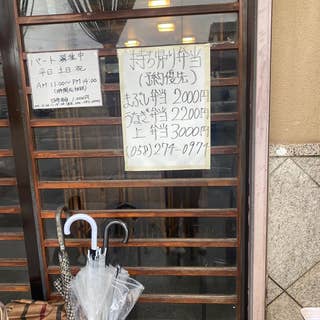 パート募集中
平日 土日祝
AM 11:00〜PM 14:00
持ち帰り弁当
(予約優先)
まぶし弁当 2000円
うなぎ弁当 2200円
上 弁当 3000円
(058)274-0974